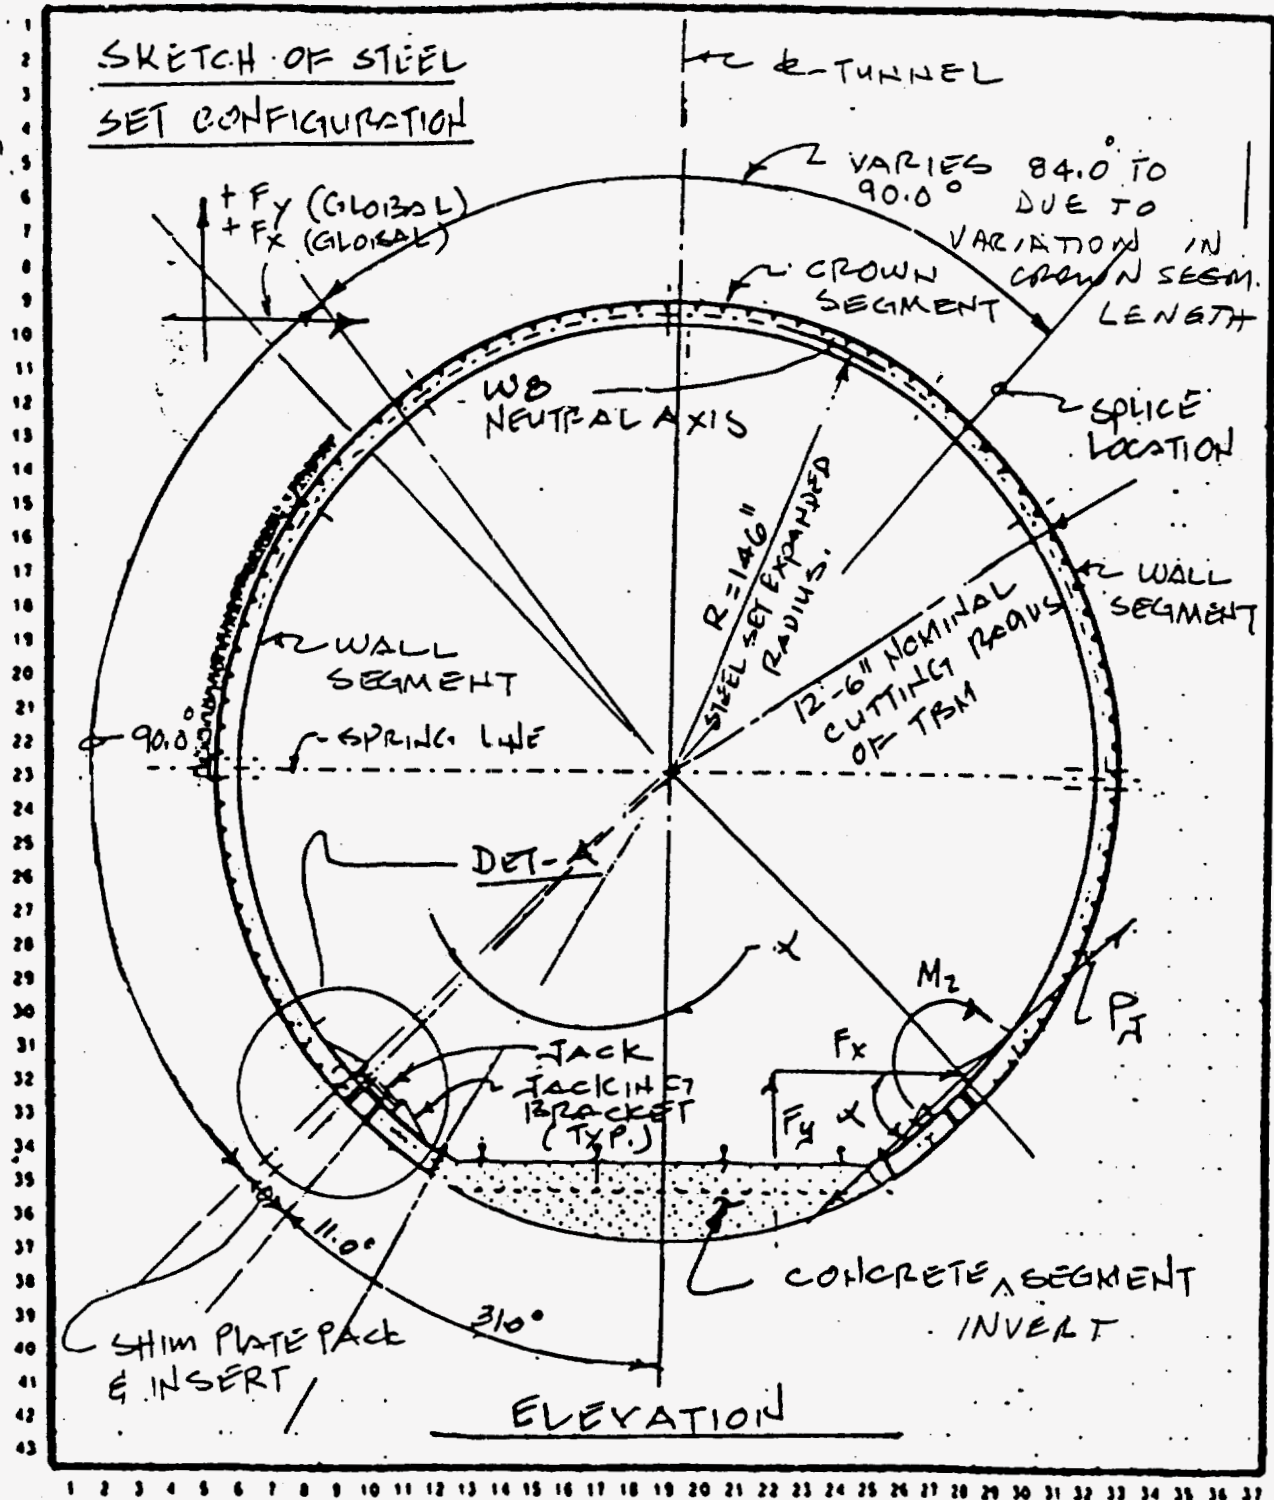 SKETCH OF STEEL
SET CONFIGURATION
℄ TUNNEL
VARIES 84.0° TO
90.0° DUE TO
VARIATION IN
CROWN SEGM.
LENGTH
+ Fy (GLOBAL)
+ Fx (GLOBAL)
CROWN
SEGMENT
W8
NEUTRAL AXIS
SPLICE
LOCATION
R=146"
STEEL SET EXPANDED
RADIUS.
WALL
SEGMENT
12'-6" NOMINAL
CUTTING RADIUS
OF TBM
WALL
SEGMENT
90.0°
SPRING LINE
DET-A
α
Mz
PJ
Fx
JACK
JACKING
BRACKET
(TYP.)
Fy
α
11.0°
CONCRETE ^ SEGMENT
INVERT
31.0°
SHIM PLATE PACK
& INSERT
ELEVATION
1
2
3
4
5
6
7
8
9
10
11
12
13
14
15
16
17
18
19
20
21
22
23
24
25
26
27
28
29
30
31
32
33
34
35
36
37
38
39
40
41
42
43
1 2 3 4 5 6 7 8 9 10 11 12 13 14 15 16 17 18 19 20 21 22 23 24 25 26 27 28 29 30 31 32 33 34 35 36 37